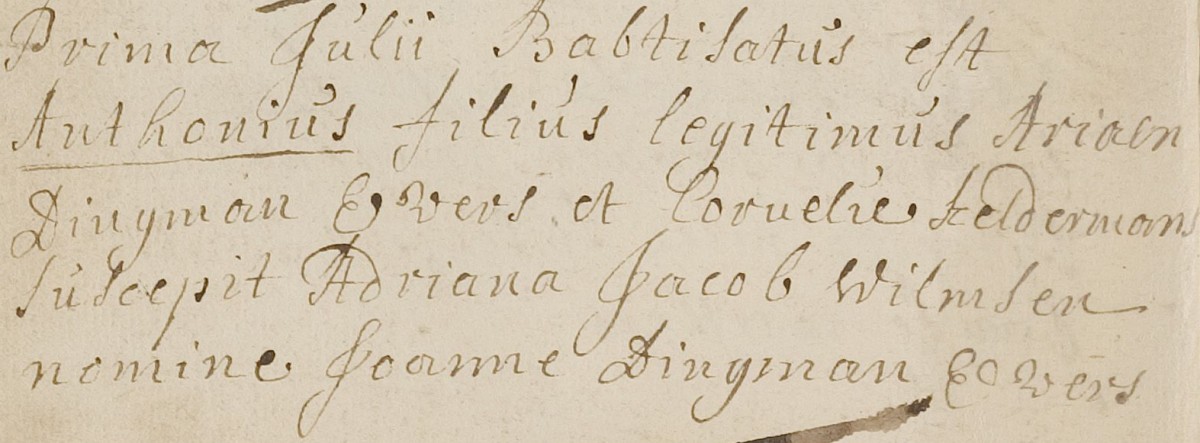 Prima Julii Babtisatus est
Anthonius filius legitimus Ariaen
Dingman Evvers et Cornelie Aeldermans
suscepit Adriana Jacob Wilmsen
nomine Joanne Dingman Evvers